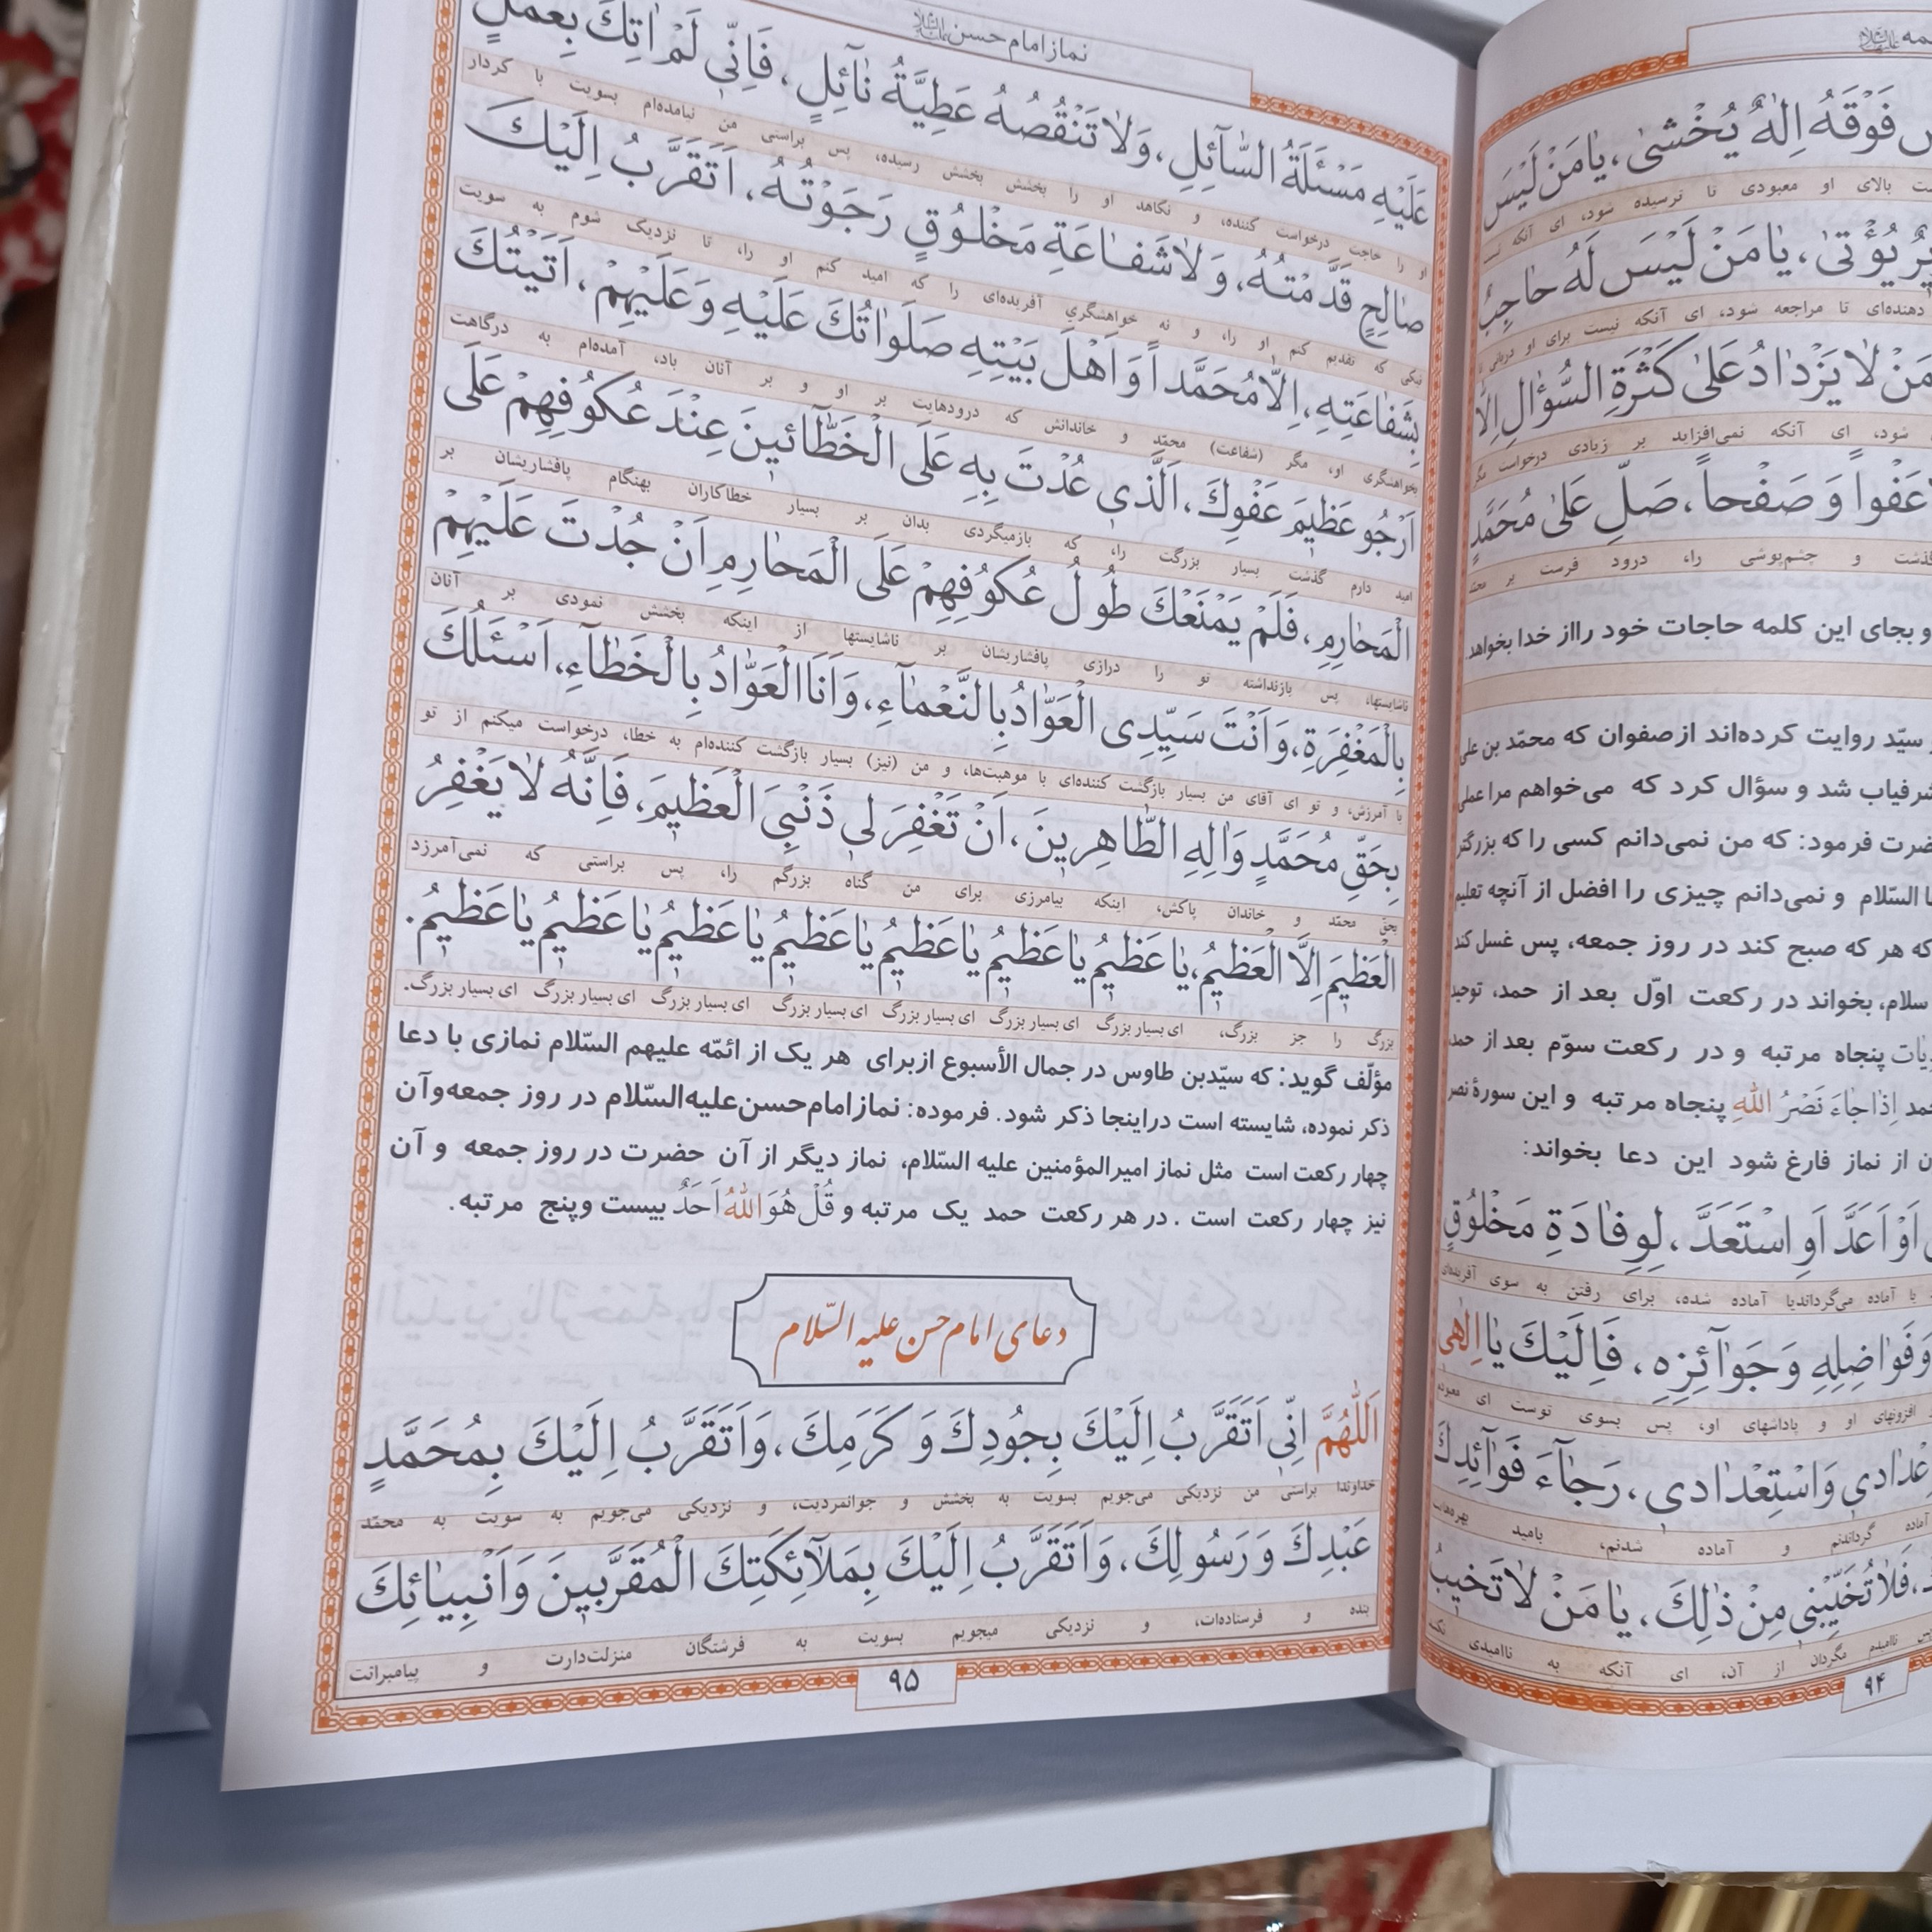 مه علیها السلام
فَوْقَهُ اِلٰهٌ یُخْشیٰ، یٰا مَنْ لَیْسَ
ت بالای او معبودی تا ترسیده شود، ای آنکه نیست
یُؤْتیٰ، یٰا مَنْ لَیْسَ لَهُ حٰاجِبٌ
دهنده‌ای تا مراجعه شود، ای آنکه نیست برای او دربانی
مَنْ لٰا یَزْدٰادُ عَلیٰ کَثْرَةِ السُّؤٰالِ اِلّٰا
شود، ای آنکه نمی‌افزاید بر زیادی درخواست مگر
عَفْوا وَ صَفْحاً، صَلِّ عَلیٰ مُحَمَّدٍ
گذشت و چشم‌پوشی را، درود فرست بر محمّد
و بجای این کلمه حاجات خود رااز خدا بخواهد.
سیّد روایت کرده‌اند از صفوان که محمّد بن علی
شرفیاب شد و سؤال کرد که می‌خواهم مرا عملی
ضرت فرمود: که من نمی‌دانم کسی را که بزرگتر
السّلام و نمی‌دانم چیزی را افضل از آنچه تعلیم
که هر که صبح کند در روز جمعه، پس غسل کند
سلام، بخواند در رکعت اوّل بعد از حمد، توحید
یات پنجاه مرتبه و در رکعت سوّم بعد از حمد
مد اِذٰا جٰاءَ نَصْرُ اللهِ پنجاه مرتبه و این سورۀ نصر
ن از نماز فارغ شود این دعا بخواند:
اَوْ اَعَدَّ اَوِ اسْتَعَدَّ، لِوِفٰادَةِ مَخْلُوقٍ
یا آماده می‌گرداندیا آماده شده، برای رفتن به سوی آفریده‌ای
وَ فَوٰاضِلِهِ وَ جَوٰآئِزِهِ، فَاِلَیْکَ یٰا اِلٰهی
افزونهای او و پاداشهای او، پس بسوی توست ای معبودم
اِعْدٰادی وَاسْتِعْدٰادی، رَجٰآءَ فَوٰآئِدِکَ
آماده گرداندنم و آماده شدنم، بامید بهره‌هایت
فَلٰا تُخَیِّبْنی مِنْ ذٰلِکَ، یٰا مَنْ لٰا تَخیبُ
ناامیدم مگردان از آن، ای آنکه به ناامیدی نکشد
۹۴
نماز امام حسن علیه السلام
عَلَیْهِ مَسْئَلَةُ السّٰآئِلِ، وَلٰا تَنْقُصُهُ عَطِیَّةُ نٰآئِلٍ، فَاِنّی لَمْ اٰتِکَ بِعَمَلٍ
او را حاجت درخواست کننده، و نکاهد او را بخشش بخشش رسیده، پس براستی من نیامده‌ام بسویت با کردار
صٰالِحٍ قَدَّمْتُهُ، وَ لٰا شَفٰاعَةِ مَخْلُوقٍ رَجَوْتُهُ، اَتَقَرَّبُ اِلَیْکَ
نیکی که تقدیم کنم او را، و نه خواهشگری آفریده‌ای را که امید کنم او را، تا نزدیک شوم به سویت
بِشَفٰاعَتِهِ، اِلّٰا مُحَمَّداً وَ اَهْلَ بَیْتِهِ صَلَوٰاتُکَ عَلَیْهِ وَ عَلَیْهِمْ، اَتَیْتُکَ
بخواهشگری او، مگر (شفاعت) محمّد و خاندانش که درودهایت بر او و بر آنان باد، آمده‌ام به درگاهت
اَرْجُو عَظیمَ عَفْوِکَ، اَلَّذی عُدْتَ بِهِ عَلَی الْخَطّٰآئینَ عِنْدَ عُکُوفِهِمْ عَلَی
امید دارم گذشت بسیار بزرگت را، که بازمیگردی بدان بر بسیار خطاکاران بهنگام پافشاریشان بر
الْمَحٰارِمِ، فَلَمْ یَمْنَعْکَ طُولُ عُکُوفِهِمْ عَلَی الْمَحٰارِمِ اَنْ جُدْتَ عَلَیْهِمْ
ناشایستها، پس بازنداشته تو را درازی پافشاریشان بر ناشایستها از اینکه بخشش نمودی بر آنان
بِالْمَغْفِرَةِ، وَ اَنْتَ سَیِّدِی الْعَوّٰادُ بِالنَّعْمٰآءِ، وَ اَنَا الْعَوّٰادُ بِالْخَطٰآءِ، اَسْئَلُکَ
با آمرزش، و تو ای آقای من بسیار بازگشت کننده‌ای با موهبت‌ها، و من (نیز) بسیار بازگشت کننده‌ام به خطا، درخواست میکنم از تو
بِحَقِّ مُحَمَّدٍ وَ اٰلِهِ الطّٰاهِرینَ، اَنْ تَغْفِرَ لی ذَنْبِیَ الْعَظیمَ، فَاِنَّهُ لٰا یَغْفِرُ
بحق محمّد و خاندان پاکش، اینکه بیامرزی برای من گناه بزرگم را، پس براستی که نمی‌آمرزد
الْعَظیمَ اِلَّا الْعَظیمُ، یٰا عَظیمُ یٰا عَظیمُ یٰا عَظیمُ یٰا عَظیمُ یٰا عَظیمُ یٰا عَظیمُ یٰا عَظیمُ.
بزرگ را جز بزرگ، ای بسیار بزرگ ای بسیار بزرگ ای بسیار بزرگ ای بسیار بزرگ ای بسیار بزرگ ای بسیار بزرگ ای بسیار بزرگ.
مؤلّف گوید: که سیّدبن طاوس در جمال الأسبوع ازبرای هر یک از ائمّه علیهم السّلام نمازی با دعا
ذکر نموده، شایسته است دراینجا ذکر شود. فرموده: نماز امام حسن علیه السّلام در روز جمعه و آن
چهار رکعت است مثل نماز امیرالمؤمنین علیه السّلام، نماز دیگر از آن حضرت در روز جمعه و آن
نیز چهار رکعت است . در هر رکعت حمد یک مرتبه و قُلْ هُوَ اللهُ اَحَدٌ بیست و پنج مرتبه.
دعای امام حسن علیه السّلام
اَللّٰهُمَّ اِنّی اَتَقَرَّبُ اِلَیْکَ بِجُودِکَ وَ کَرَمِکَ، وَ اَتَقَرَّبُ اِلَیْکَ بِمُحَمَّدٍ
خداوندا براستی من نزدیکی می‌جویم بسویت به بخشش و جوانمردیت، و نزدیکی می‌جویم به سویت به محمّد
عَبْدِکَ وَ رَسُولِکَ، وَ اَتَقَرَّبُ اِلَیْکَ بِمَلٰآئِکَتِکَ الْمُقَرَّبینَ وَ اَنْبِیٰائِکَ
بنده و فرستاده‌ات، و نزدیکی میجویم بسویت به فرشتگان منزلت‌دارت و پیامبرانت
۹۵